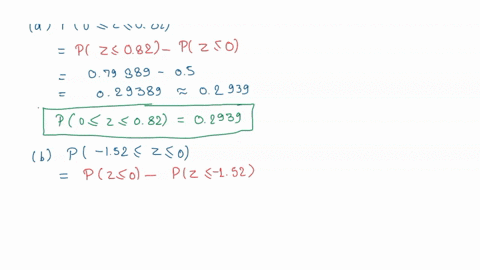 (a) P(0 ≤ z ≤ 0.82)
= P(z ≤ 0.82) - P(z ≤ 0)
= 0.79389 - 0.5
= 0.29389 ≈ 0.2939
P(0 ≤ z ≤ 0.82) = 0.2939
(b) P(-1.52 ≤ z ≤ 0)
= P(z ≤ 0) - P(z ≤ -1.52)